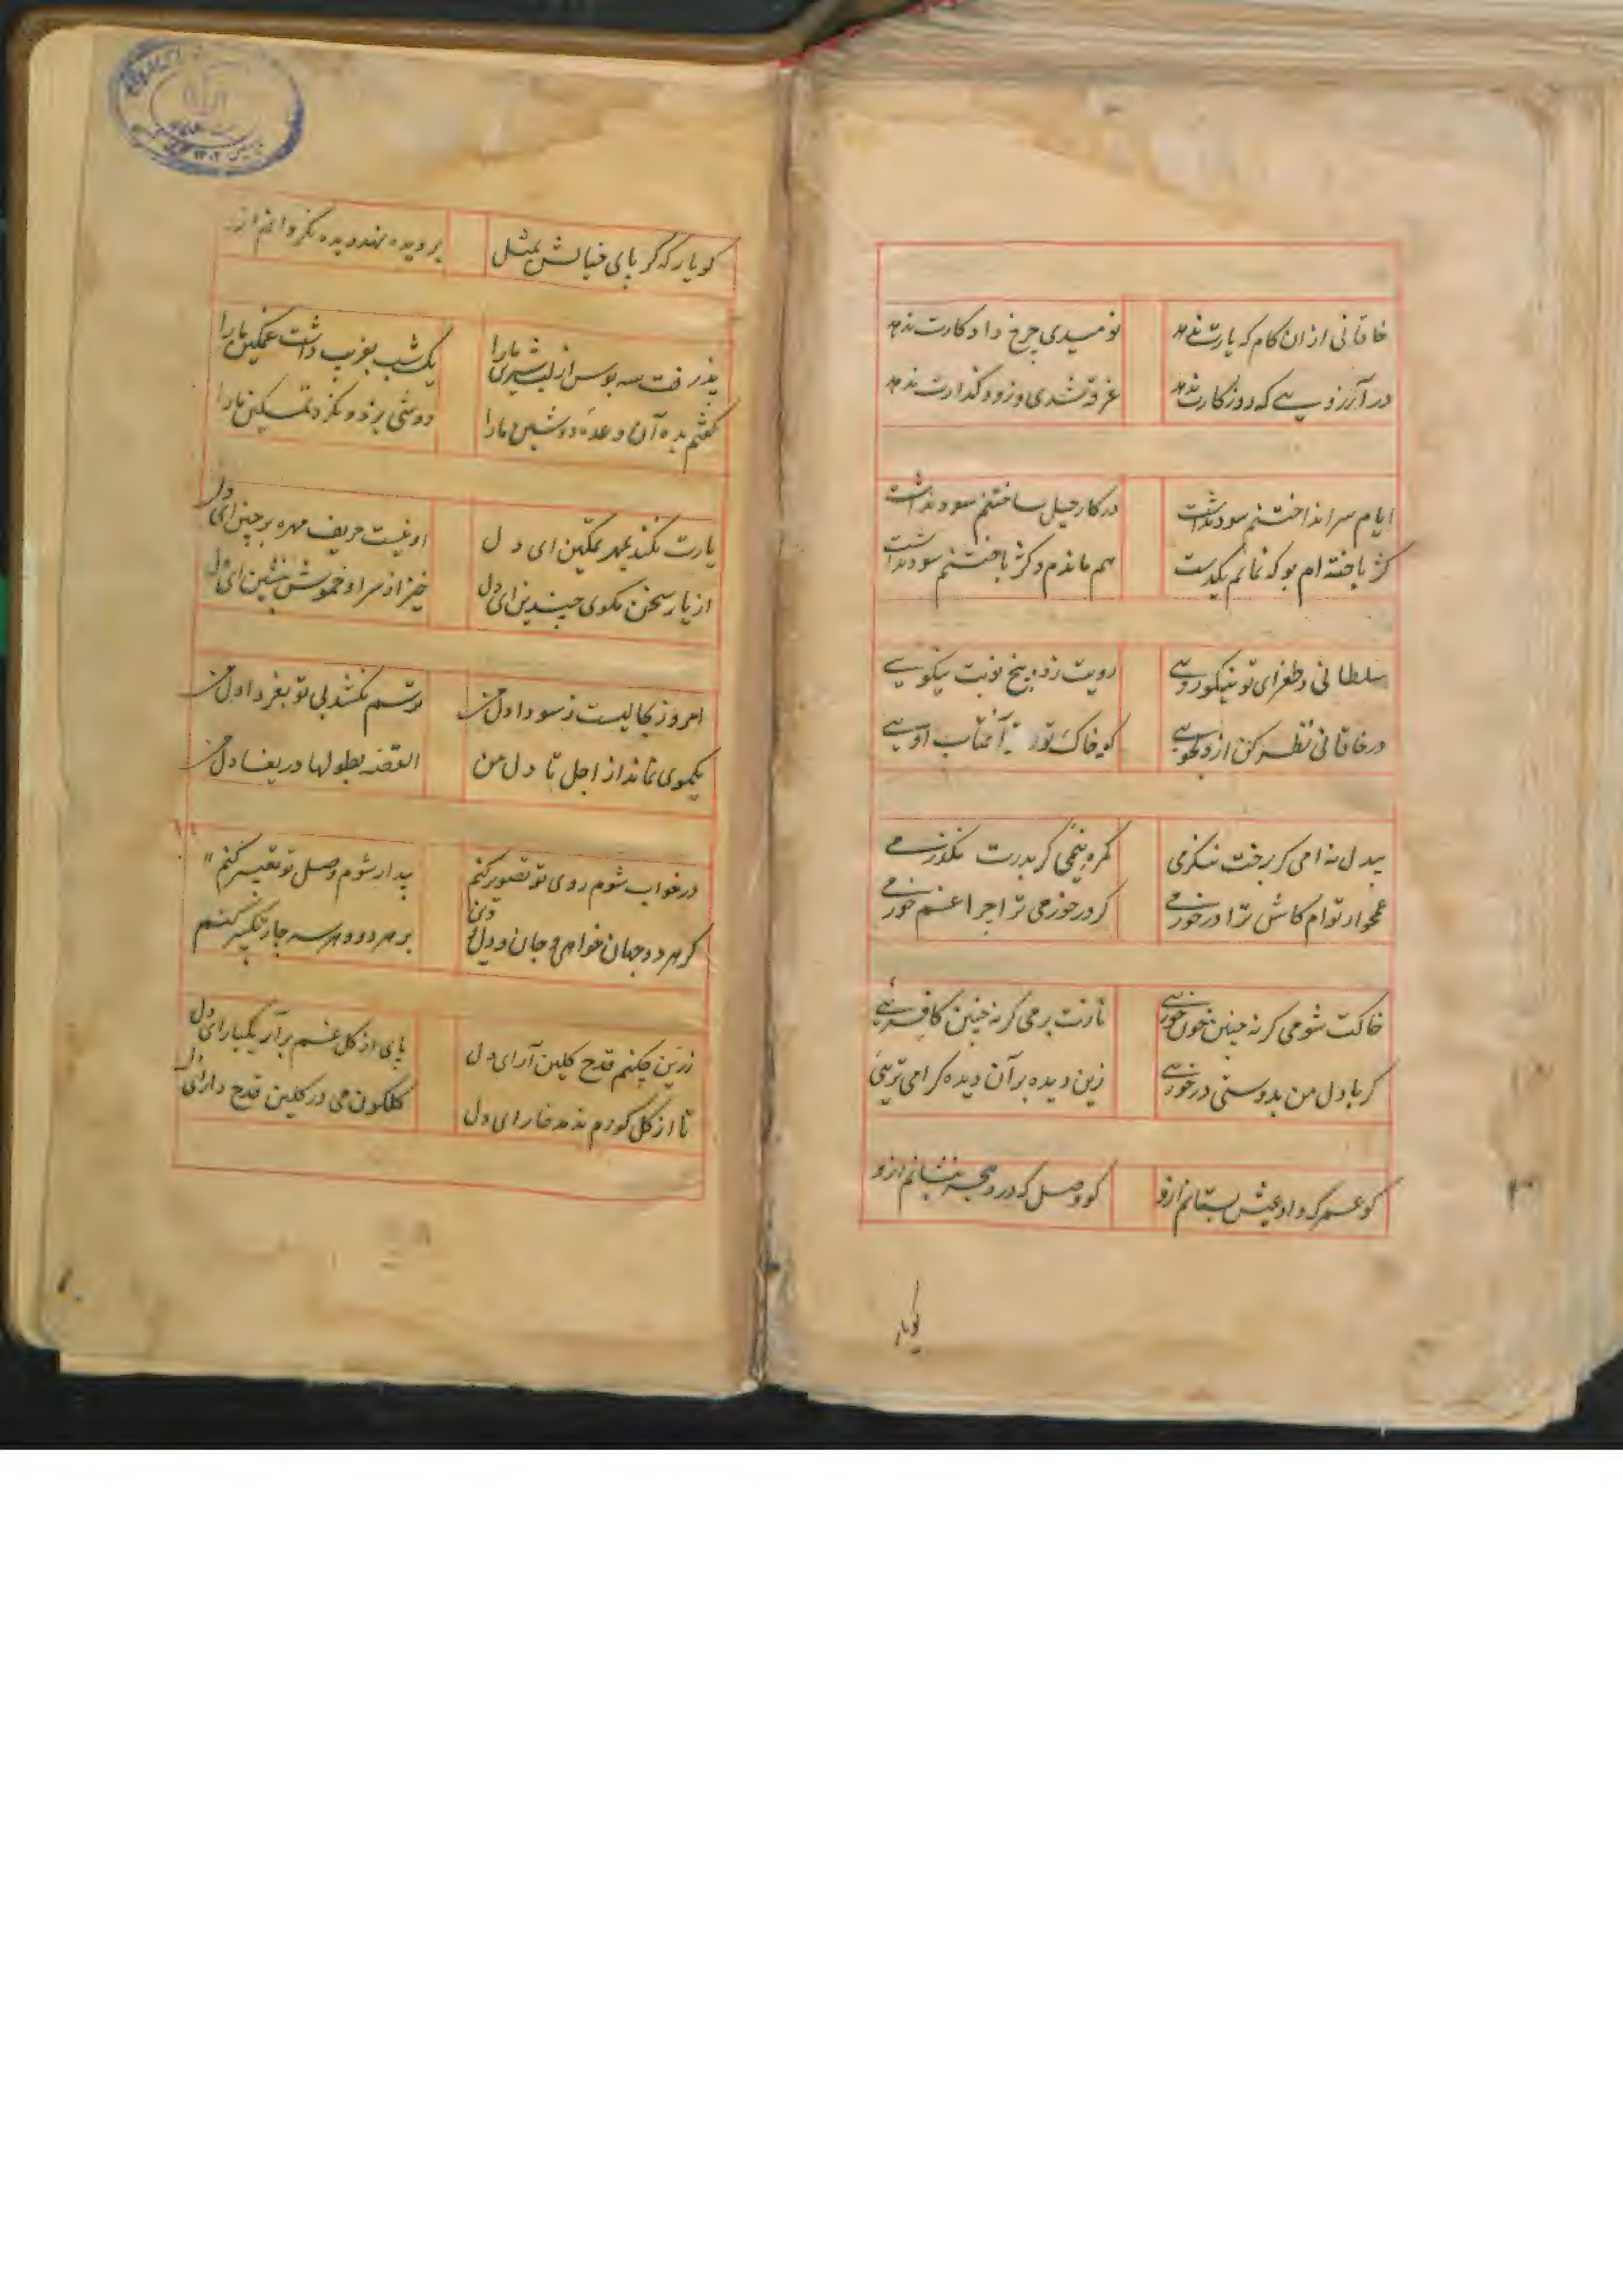 خاقانی ازان کام که یارت ندهد نومیدی چرخ داد کارت ندهد
در آرزویی که روزگارت ندهد غرقه شدی و زود گذارت ندهد
ایام سر انداختنم سود نداشت در کار حیل ساختنم سود نداشت
کژ باخته ام بو که نمانم یکدست هم ماندم و کژ باختنم سود نداشت
سلطانی و طغرای تو نیکورویی رویت زده پنج نوبت نیکویی
در خاقانی نظر کن از دلجویی کو خاک تو آفتاب اویی
بیدل نه امی گر برخت ننگرمی گمره نیمی گر بدرت نگذرمی
غمخوار توام کاش ترا درخورمی گر درخورمی ترا چرا غم خورمی
خاکت شومی گر نه چنین خون خوریی نازت برمی گر نه چنین کافریی
گر با دل من بدوستی درخوریی زین دیده بر آن دیده گرامی تریی
کو عمر که داد عیش بستانم ازو کو وصل که درد هجر بنشانم ازو
کویار
کو یار که گر پای خیالش بمثل بر دیده نهد دیده نگردانم ازو
پذرفت سه بوس از لب شیرین ما را یک شب بفریب داشت غمگین ما را
گفتم بده آن وعدۀ دوشین ما را دستی بزد و نکرد تمکین ما را
یارت نکند بمهر تمکین ای دل او نیست حریف مهره برچین ای دل
از یار سخن مگوی چندین ای دل خیز از سر او خموش بنشین ای دل
امروز بحالیست ز سودا دل من ترسم نکشد بی تو بفردا دل من
یکموی نماند از اجل تا دل من القصه بطولها دریغا دل من
در خواب شوم روی تو تصویر کنم بیدار شوم وصل تو تعبیر کنم
گر هر دو جهان خواهی و جان و دل و تن بر هر دو و هر سه چار تکبیر کنم
زرین چکنم قدح گلین آر ای دل پای از گل غم برآر یکبار ای دل
تا از گل گورم ندمد خار ای دل گلگون می در گلین قدح دار ای دل